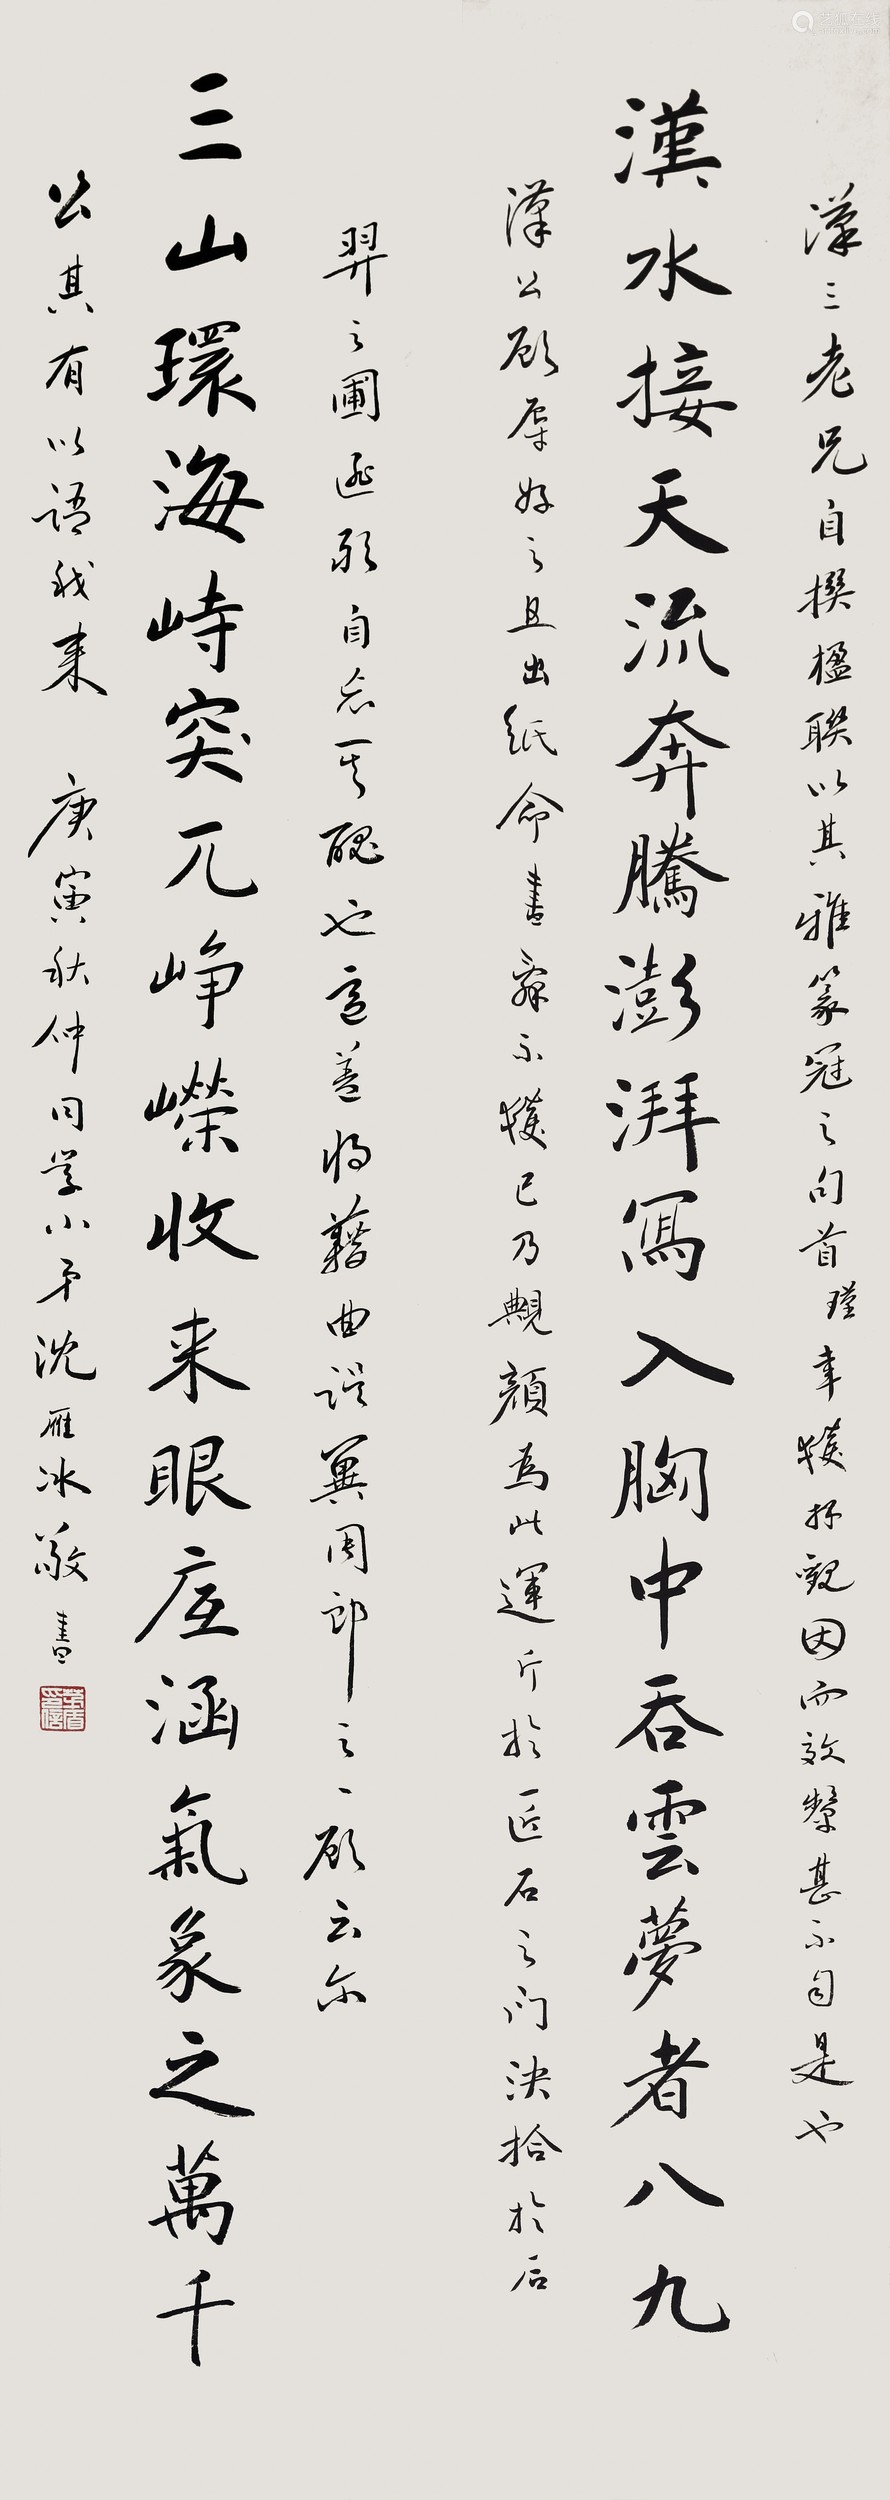 漢三老兄自撰楹聯以其雅篆冠之句首瑾韋獲拜觀因而效顰甚不自是也
漢水接天流奔騰澎湃寫入胸中吞雲夢者八九
漢公顧辱好之且出紙命書辭不獲已乃靦顏為此運斤於匠石之門決拾於后
羿之圃遊形自忘其醜也意善將藉曲誤冀周郎之一顧云尔
三山環海峙突兀峥嶸收来眼底涵氣象之萬千
公其有以語我来 庚寅秋仲同学小弟沈雁冰敬書
茅盾